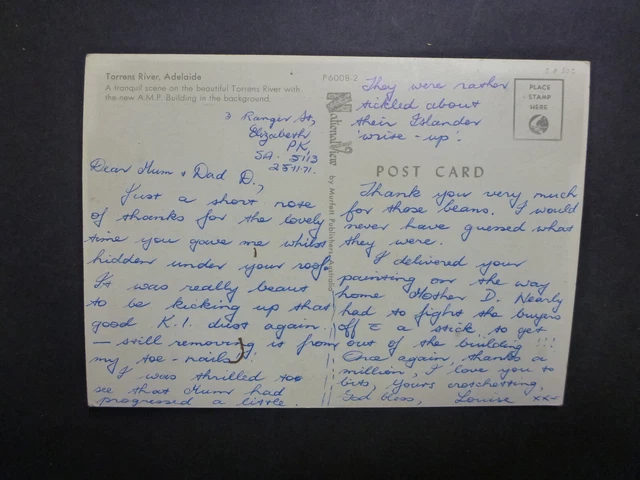 Torrens River, Adelaide
A tranquil scene on the beautiful Torrens River with
the new A.M.P. Building in the background.
P600B-2
3 Ranger St,
Elizabeth
PK,
SA. 5113
25.11.71.
Dear Mum + Dad D.,
Just a short note
of thanks for the lovely
time you gave me whilst
hidden under your roof.
It was really beaut
to be kicking up that
good K.I. dust again
— still removing it from
my toe-nails!
I was thrilled too
see that Mum had
progressed a little.
They were rather
tickled about
their Islander
'write-up'.
PLACE
STAMP
HERE
NationalView
by Murfett Publishers Australia
POST CARD
Thank you very much
for those beans. I would
never have guessed what
they were.
I delivered your
painting on the way
home Mother D. Nearly
had to fight the buyers
off c̄ a stick to get
out of the building!!!
Once again, thanks a
million, I love you to
bits, Yours crotchetting,
God bless, Louise xx